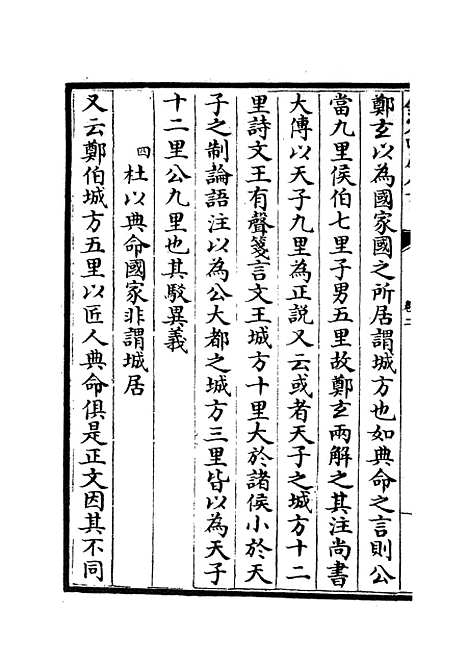 鄭玄以為國家國之所居謂城方也如典命之言則公
當九里侯伯七里子男五里故鄭玄兩解之其注尚書
大傳以天子九里為正說又云或者天子之城方十二
里詩文王有聲箋言文王城方十里大於諸侯小於天
子之制論語注以為公大都之城方三里皆以為天子
十二里公九里也其駁異義
四杜以典命國家非謂城居
又云鄭伯城方五里以匠人典命俱是正文因其不同